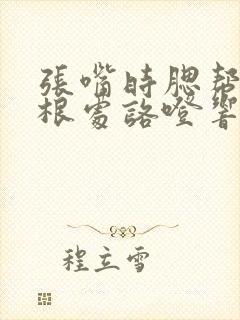 張嘴時腮幫
根處咯噔響
程立雪